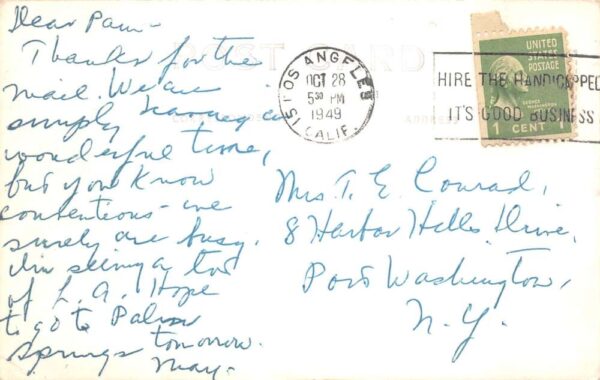 Dear Pam -
Thanks for the
mail. We are
simply having a
wonderful time,
but you know
conventions - we
surely are busy.
I'm seeing a lot
of L. A. Hope
to go to Palm
Springs tomorrow.
May -
POST CARD
ADDRESS
LOS ANGELES
OCT 28
5 30 PM
1949
CALIF.
HIRE THE HANDICAPPED
IT'S GOOD BUSINESS
UNITED
STATES
POSTAGE
GEORGE
WASHINGTON
1 CENT 1
Mrs T. E. Conrad,
8 Harbor Hills Drive,
Port Washington,
N. Y.